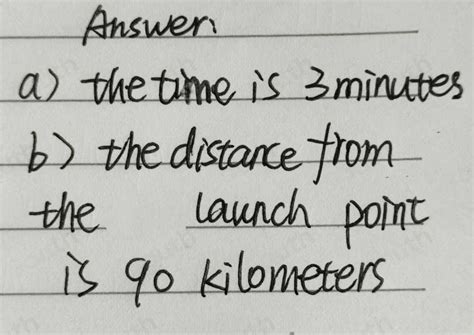 Answer:
a) the time is 3 minutes
b) the distance from
the launch point
is 90 kilometers